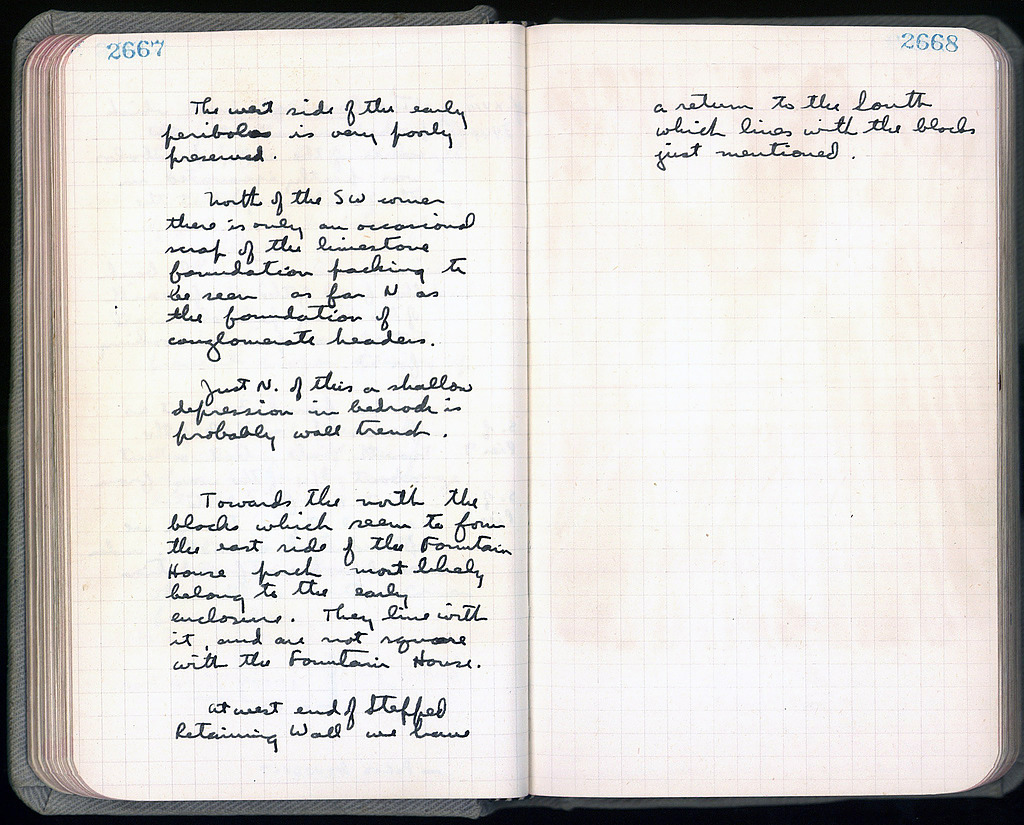 2667
The west side of the early
peribolos is very poorly
preserved.
North of the SW corner
there is only an occasional
scrap of the limestone
foundation packing to
be seen as far N as
the foundation of
conglomerate headers.
Just N. of this a shallow
depression in bedrock is
probably wall trench.
Towards the north the
blocks which seem to form
the east side of the Fountain
House porch most likely
belong to the early
enclosure. They line with
it, and are not square
with the Fountain House.
At west end of Stepped
Retaining Wall we have
2668
a return to the South
which lines with the blocks
just mentioned.